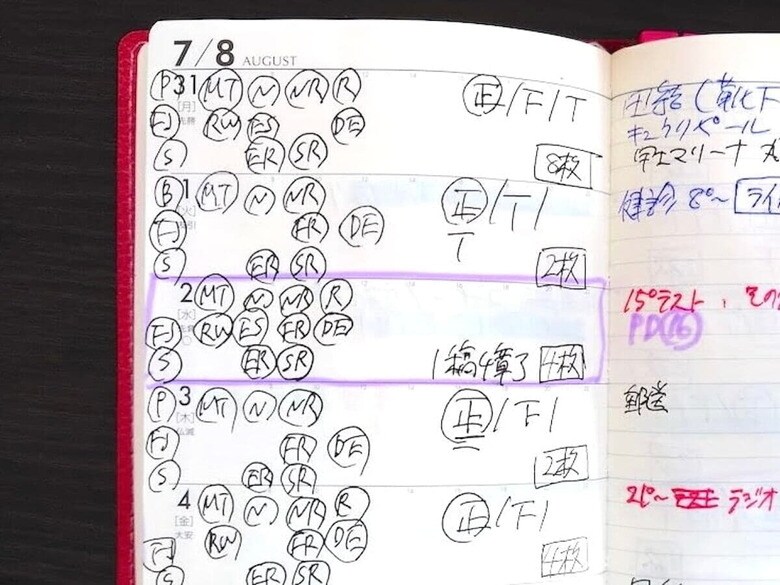 7/8 AUGUST
P 31 MT N NR R 正/T/T
[月] 先勝
FJ RW ES DE
S ER SR 8枚
B 1 MT N NR 正/T/
FJ FR DE T
S ER SR 2枚
2 MT N NR R
[水]
FJ RW ES FR DE
S ER SR 1稿4章了 4枚
P 3 MT N NR 正/T/
[木] 仏滅
FJ FR DE
S ER SR 2枚
4 MT N NR R 正/T/
[金] 大安
FJ RW FR DE
S ER SR 4枚
キュウリ ピール
マリーナ
健診 8°~ ライ
15°テスト、
PD 16
郵送
21°~ ラジオ